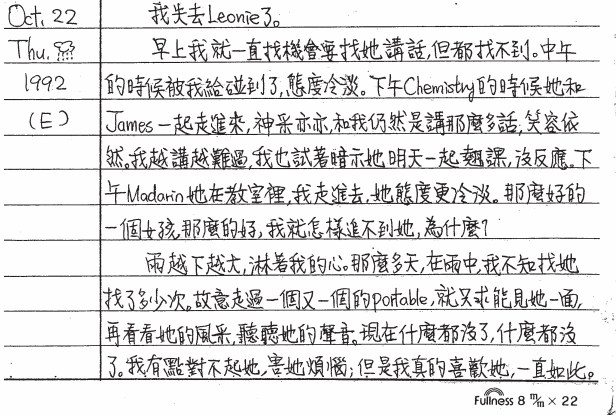 Oct. 22 我失去Leonie了。
Thu. 早上我就一直找機會要找她講話,但都找不到。中午
1992 的時候被我給碰到了,態度冷淡。下午Chemistry的時候她和
(E) James一起走進來,神采亦亦,和我仍然是講那麼多話,笑容依
然。我越講越難過,我也試著暗示她明天一起翹課,沒反應。下
午Madarin她在教室裡,我走進去,她態度更冷淡。那麼好的
一個女孩,那麼的好,我就怎樣追不到她,為什麼?
雨越下越大,淋著我的心。那麼多天,在雨中,我不知找她
找了多少次。故意走過一個又一個的portable,就只求能見她一面,
再看看她的風采,聽聽她的聲音。現在什麼都沒了,什麼都沒
了。我有點對不起她,害她煩惱;但是我真的喜歡她,一直如此。
Fullness 8 m/m × 22